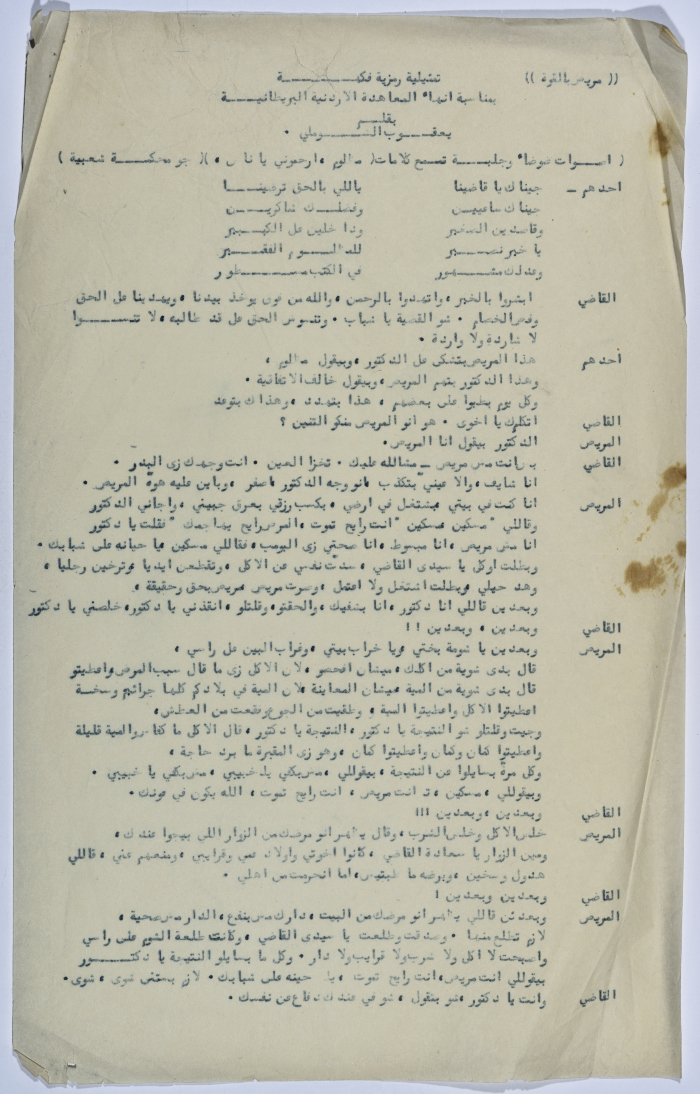 (( مريض بالقوة )) تمثيلية رمزية فكهـــــة
بمناسبة انهاء المعاهدة الاردنية البريطانيـــة
بقلـــم
يعقـــوب الشـــوملي .
( اصـــوات ضوضاء وجلبـــة تسمع كلامات( مظلوم ، ارحموني يا ناس ، )( جو محكمـــة شعبية )
احدهم ــ جيناك يا قاضينا ياللي بالحق ترضينـــا
جيناك ساعييـــن وفضلـــك شاكريـــن
وقاصدين الصغير ودا خلين عل الكبـــير
يا خير نصـــير للمظلـــوم الفقـــير
وعدلك مشـــهور في الكتب مســـطور
القاضي ابشروا بالخير ، واتهدوا بالرحمن ، والله من عون يوخذ بيدنا ، ويهدينا عل الحق
وفض الخصام . شو القضية يا شباب . وتنوس الحق على قد طالبه ، لا تنســـوا
لا شاردة ولا واردة .
احدهم هذا المريض بتشكى عل الدكتور ، وبيقول مظلوم ،
وهذا الدكتور بتهم المريض ، وبيقول خالف الاتفاقية .
وكل يوم بطبوا على بعضهم ، هذا بتهدد ، وهذاك بتوعد
القاضي اتكلم يا اخوي . هو انو المريض منكو التنين ؟
المريض الدكتور بيقول انا المريض .
القاضي بس انت مش مريض ــ مشالله عليك . تخزا العين . انت وجهك زي البدر .
انا شايف ، والا عيني بتكذب ، انو وجه الدكتور اصفر ، وباين عليه هوة المريض .
المريض انا كنت في بيتي بشتغل في ارضي ، بكسب رزقي بعرق جبيني ، واجاني الدكتور
وقاللي "مسكين مسكين" انت رايح تموت ، المرض رايح يهاجمك " فقلت يا دكتور
انا مش مريض ، انا مبسوط ، انا صحتي زي البومب ، فقاللي مسكين يا حيانه على شبابك .
وبطلت اوكل يا سيدي القاضي ، سدت نفسي عن الاكل ، وتقطعن ايديا وترخين رجليا ،
وهد حيلي ، وبطلت اشتغل ولا اعتمل ، وصرت مريض مريض بحق وحقيقة ،
وبعدين قاللي انا دكتور ، انا بشفيك ، والحقتو وقلتلو ، انقذني يا دكتور ، خلصني يا دكتور
القاضي وبعدين ، وبعدين !!
المريض وبعدين يا شومة بختي ، ويا خراب بيتي ، وغراب البين عل راسي ،
قال بدى شوية من اكلك ، ميشان افحصو ، لان الاكل زي ما قال سبب المرض واعطيتو
قال بدى شوية من المية ، ميشان المعاينة ، لان المية في بلادكم كلها جراثيم وسخـــة
اعطيتوا الاكل واعطيتوا المية ، وطقيت من الجوع وفقعت من العطش ،
وجيت وقلتلو شو النتيجة يا دكتور ، النتيجة يا دكتور ، قال الاكل ما كفاش والمية قليلة
واعطيتوا كمان وكمان واعطيتوا كمان ، وهو زي المقبرة ما برد حاجة ،
وكل مرة بسايلوا عن النتيجة ، بيقوللي ، مش بكفي يا خبيبي ، مش بكفي يا خبيبي .
وبيقوللي ، مسكين ، انت مريض ، انت رايح تموت ، الله يكون في عونك .
القاضي وبعدين ، وبعدين !!!
المريض خلص الاكل وخلص الشرب ، وقال يظهر انو مرضك من الزوار اللي بيجوا عندك ،
ومين الزوار يا سعادة القاضي ، كانوا اخوتي واولاد عمي وقرايبي ، ومنعهم عني ، قاللي
هدول وسخين ، وبرضه ما طبتيش ، اما انحرمت من اهلي .
القاضي وبعدين وبعدين !
المريض وبعدين قاللي يظهر انو مرضك من البيت ، دارك مش بنفع ، الدار مش صحية ،
لازم تطلع منها . وصدقت وطلعت يا سيدي القاضي ، وكانت طلعة الشوم على راسي
واصبحت لا اكل ولا شرب ولا قرايب ولا دار . وكل ما بسايلو النتيجة يا دكتـــور
بيقوللي انت مريض ، انت رايح تموت ، يا حينه على شبابك . لازم بستنى شوى ، شوى .
القاضي وانت يا دكتور ، شو بتقول ، شو في عندك دفاع عن نفسك .